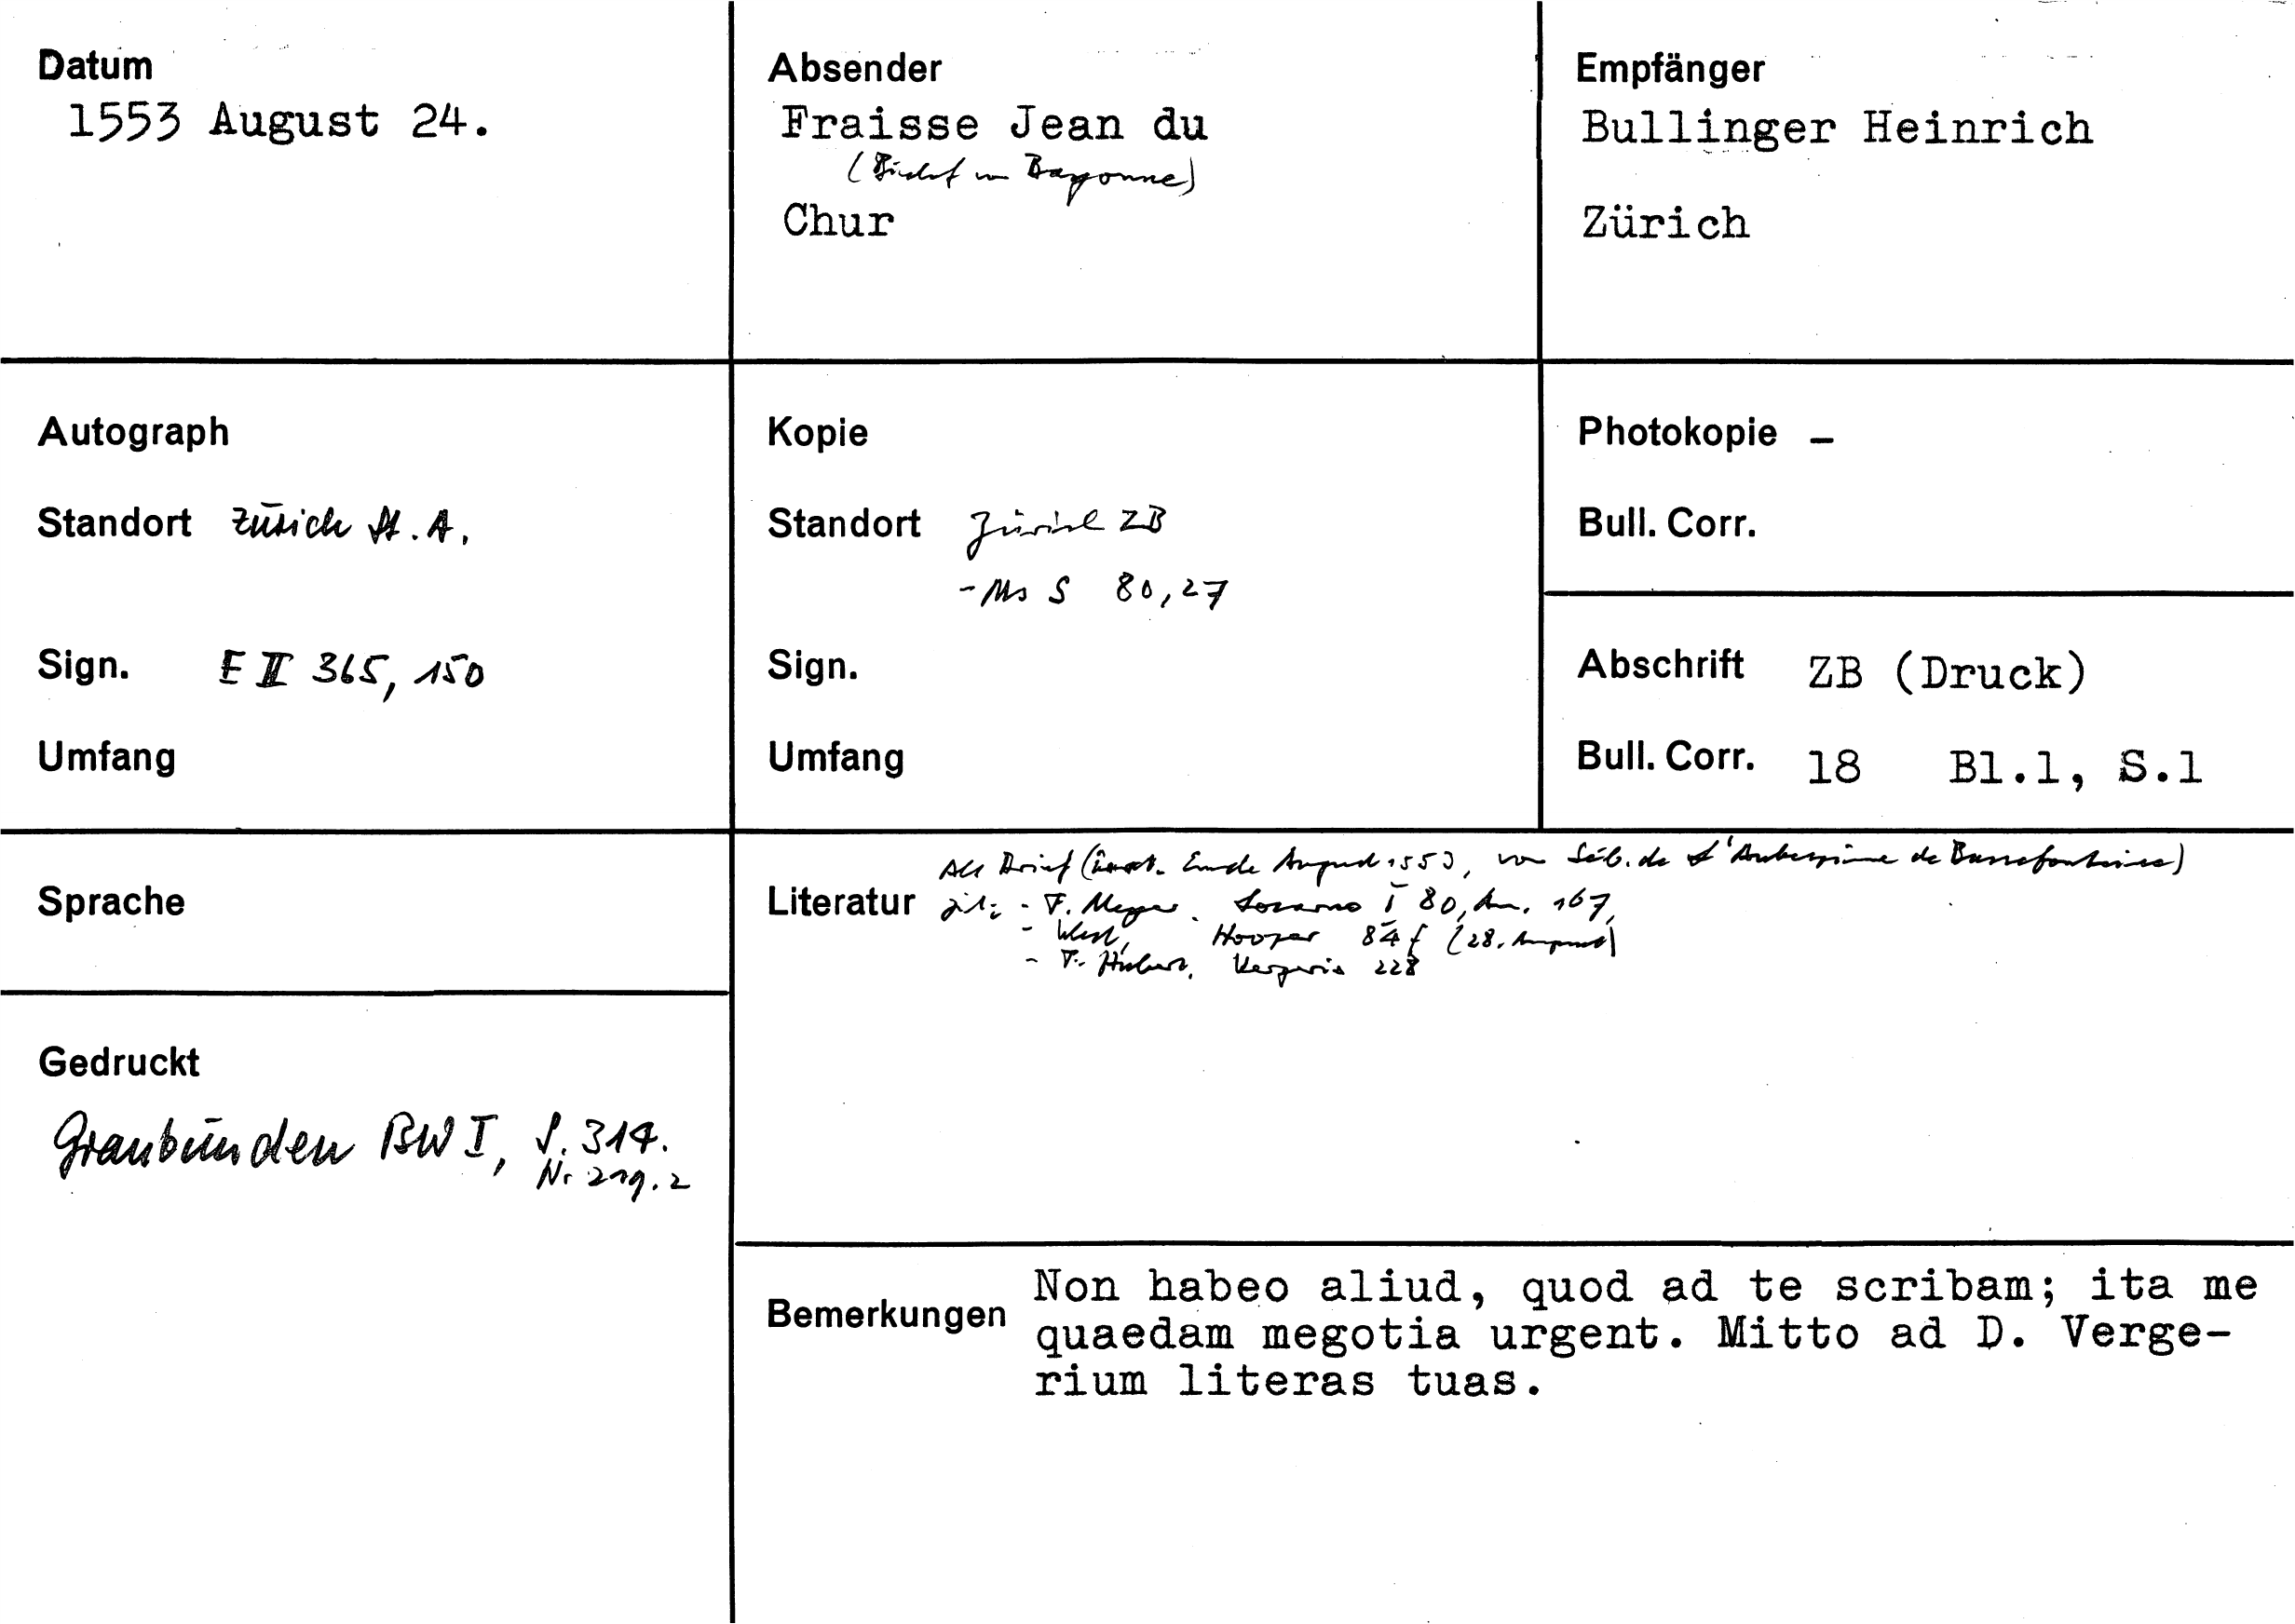 Datum
1553 August 24.
Absender
Fraisse Jean du
(Bischof von Bayonne)
Chur
Empfänger
Bullinger Heinrich
Zürich
Autograph
Standort Zürich St.A.
Sign. E II 365, 150
Umfang
Kopie
Standort Zürich ZB
- Ms S 80,27
Sign.
Umfang
Photokopie –
Bull. Corr.
Abschrift ZB (Druck)
Bull. Corr. 18 Bl.1, S.1
Sprache
Gedruckt
Graubünden BW I, S. 314.
Nr 219.2
Als Brief ( Ende August 1553, von Séb. de l'Aubespine de Bassefontaine)
Literatur zit: - F. Meyer. Locarno I 80, Anm. 167,
- West, Hooper 84 f (28. August)
- F. Hubert, Vergerio 228
Bemerkungen
Non habeo aliud, quod ad te scribam; ita me
quaedam megotia urgent. Mitto ad D. Verge-
rium literas tuas.